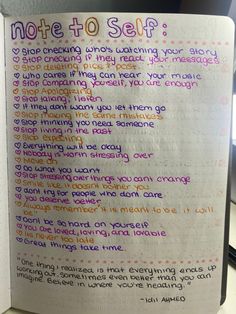 note to self:
♡ Stop checking who's watching your story
♡ Stop checking if they read your messages
♡ Stop deleting pics & posts
♡ Who cares if they can hear your music
♡ Stop comparing yourself, you are enough
♡ Stop Apologizing
♡ Stop talking, listen
♡ If they dont want you let them go
♡ Stop making the same mistakes
♡ Stop thinking you need someone
♡ Stop living in the past
♡ Stop expecting
♡ Everything will be okay
♡ Nobody is worth stressing over
♡ Move on
♡ Do what you want
♡ Stop stressing over things you cant change
♡ Smile like it doesnt bother you
♡ dont try for people who dont care
♡ you deserve better
♡ Always remember "it is meant to be it will
be"
♡ Dont be so hard on yourself
♡ You are loved, loving, and lovable
♡ its never too late
♡ Great things take time.
"One thing I realized is that everything ends up
working out. Sometimes even better than you can
imagine. Believe in where you're heading."
AHMED